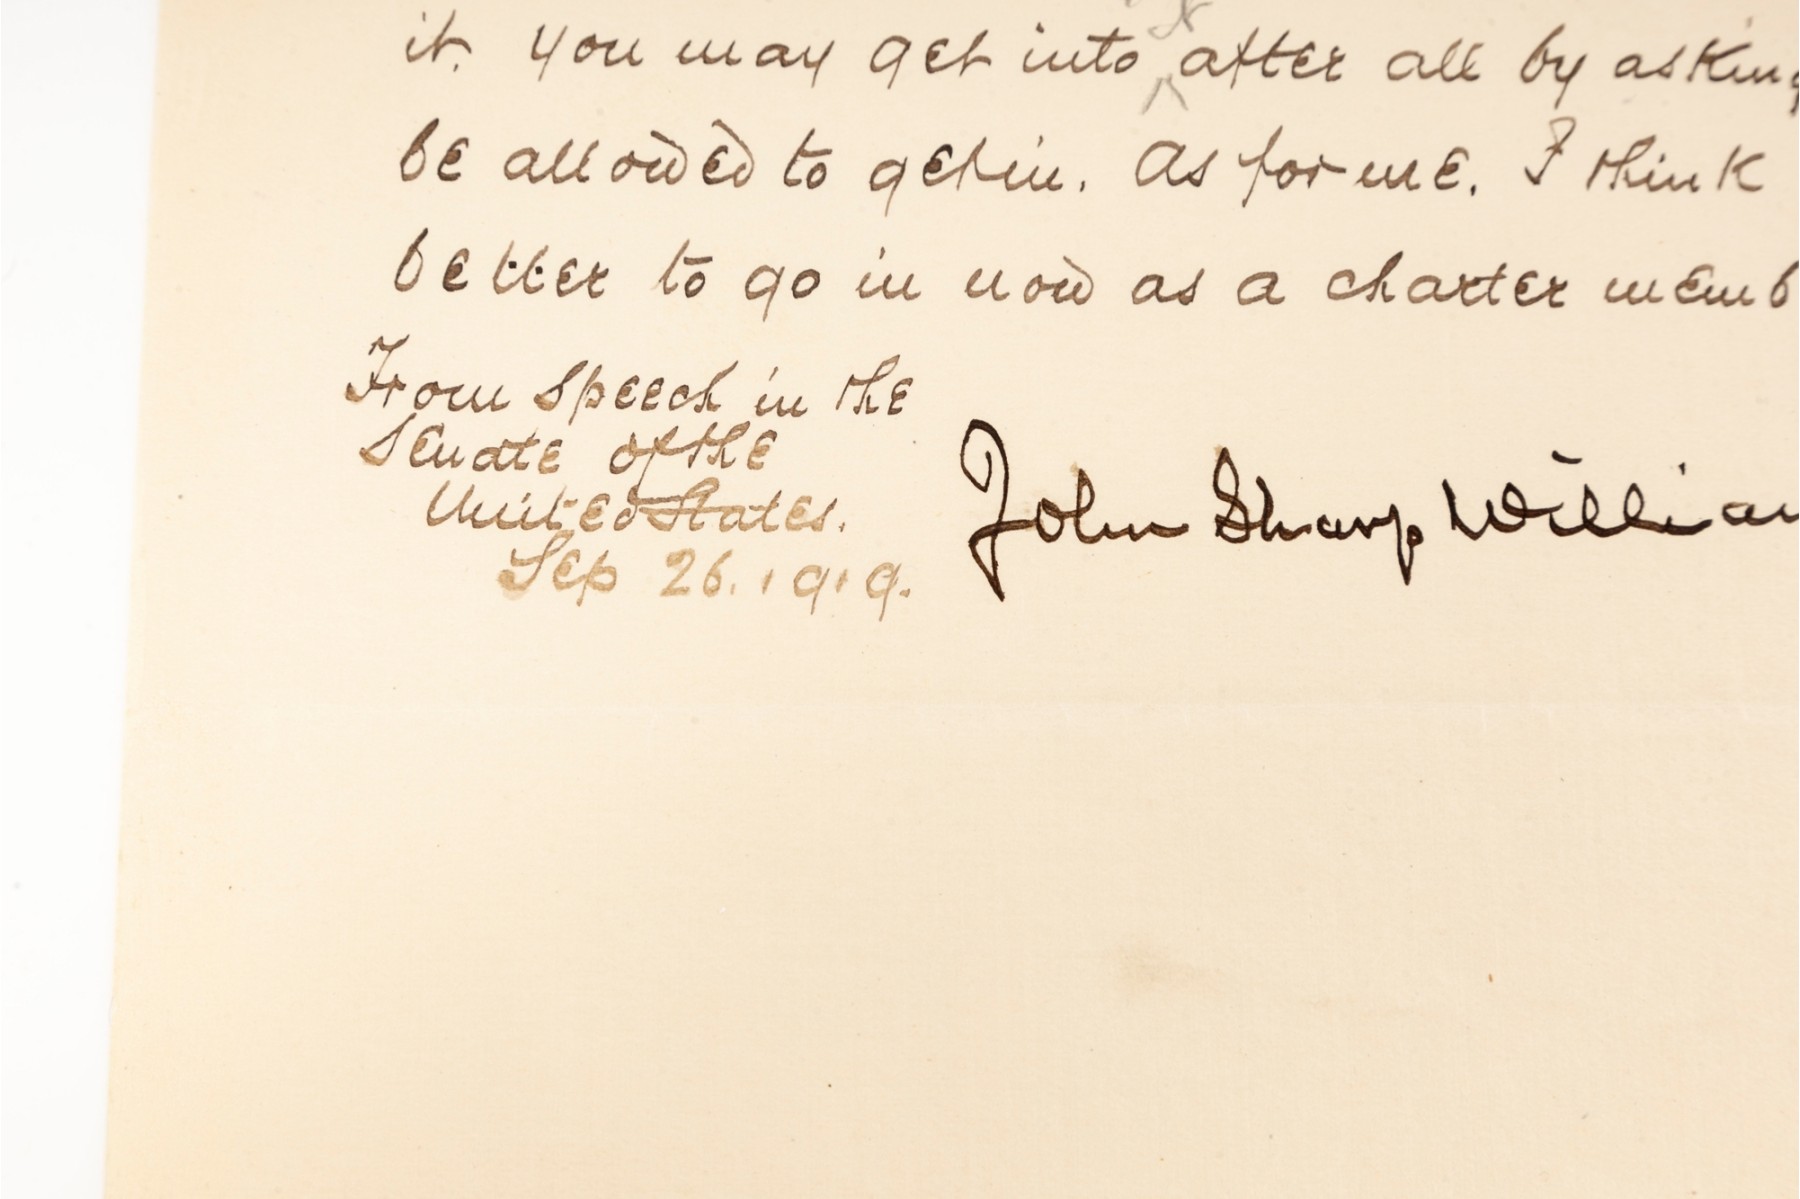 it. you may get into after all by asking
be allowed to get in. As for me. I think
better to go in now as a charter memb
From Speech in the
Senate of the
United States.
Sep 26. 1919.
John Sharp William